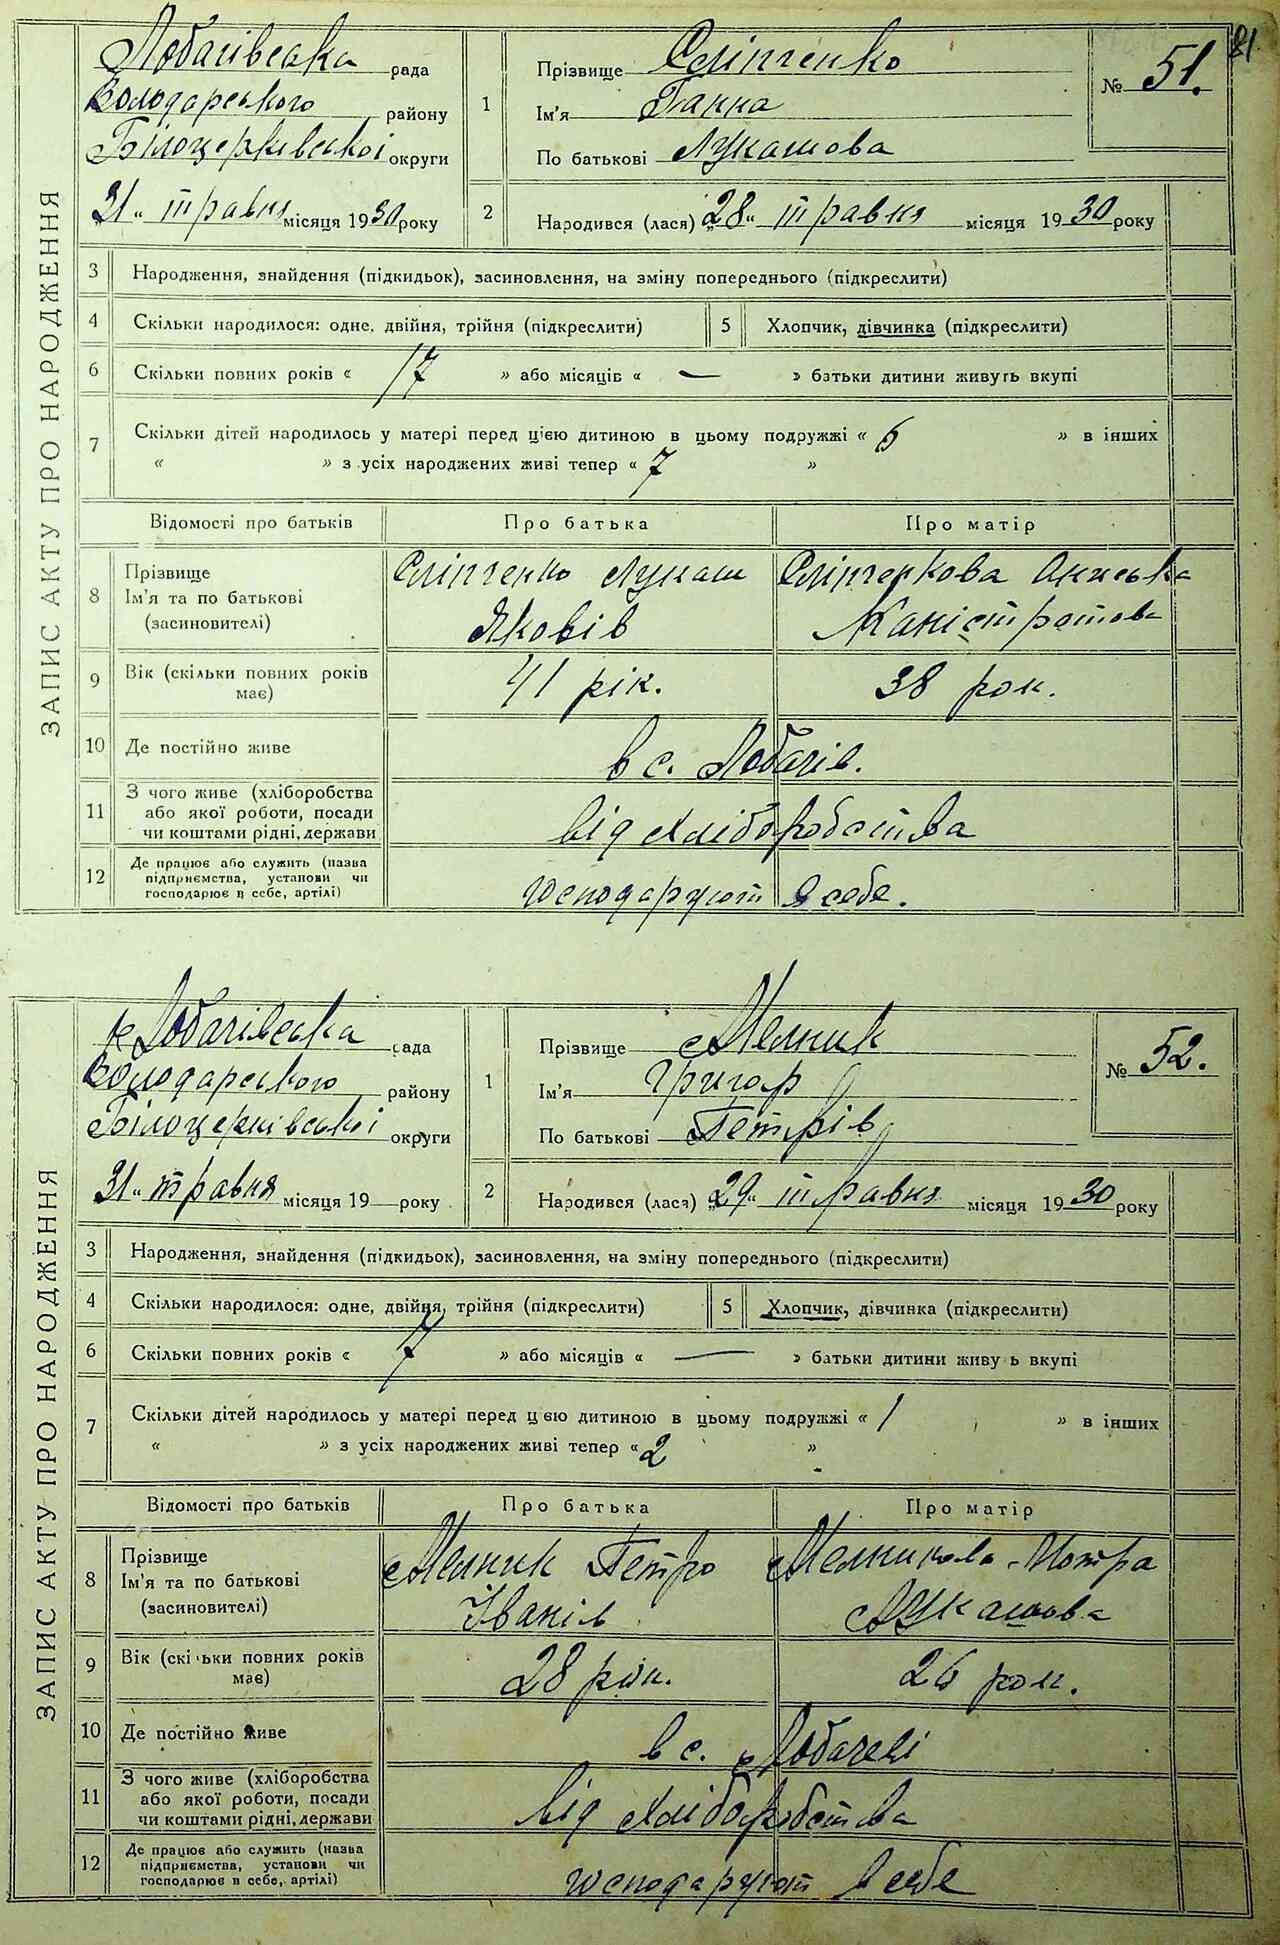 81
ЗАПИС АКТУ ПРО НАРОДЖЕННЯ
Лобачівська рада
Володарського району
Білоцерківської округи
31 " травня місяця 1930 року
1 Прізвище Сліпченко
Ім'я Ганна
По батькові Лукашова
№ 51.
2 Народився (лася) „28" травня місяця 1930 року
3 Народження, знайдення (підкидьок), засиновлення, на зміну попереднього (підкреслити)
4 Скільки народилося: одне, двійня, трійня (підкреслити) 5 Хлопчик, дівчинка (підкреслити)
6 Скільки повних років « 17 » або місяців « — » батьки дитини живуть вкупі
7 Скільки дітей народилось у матері перед цією дитиною в цьому подружжі « 6 » в інших
« » з усіх народжених живі тепер « 7 »
Відомості про батьків Про батька Про матір
8 Прізвище
Ім'я та по батькові
(засиновителі)
Сліпченко Лукаш
Яковів
Сліпченкова Ониська
Каністратова
9 Вік (скільки повних років
має)
41 рік. 38 рок.
10 Де постійно живе в с. Лобачів.
11 З чого живе (хліборобства
або якої роботи, посади
чи коштами рідні, держави
від хліборобства
12 Де працює або служить (назва
підприємства, установи чи
господарює в себе, артілі)
господарюют в себе.
ЗАПИС АКТУ ПРО НАРОДЖЕННЯ
Лобачівська рада
Володарського району
Білоцерківської округи
31 " травня місяця 19 року
1 Прізвище Мелник
Ім'я Григор
По батькові Петрів
№ 52.
2 Народився (лася) „29" травня місяця 1930 року
3 Народження, знайдення (підкидьок), засиновлення, на зміну попереднього (підкреслити)
4 Скільки народилося: одне, двійня, трійня (підкреслити) 5 Хлопчик, дівчинка (підкреслити)
6 Скільки повних років « 7 » або місяців « — » батьки дитини живу ь вкупі
7 Скільки дітей народилось у матері перед цією дитиною в цьому подружжі « 1 » в інших
« » з усіх народжених живі тепер « 2 »
Відомості про батьків Про батька Про матір
8 Прізвище
Ім'я та по батькові
(засиновителі)
Мелник Петро
Іванів
Мелникова Мотра
Лукашова
9 Вік (скільки повних років
має)
28 рок. 26 рок.
10 Де постійно живе в с. Лобачеві
11 З чого живе (хліборобства
або якої роботи, посади
чи коштами рідні, держави
від хліборобства
12 Де працює або служить (назва
підприємства, установи чи
господарює в себе, артілі)
господарюют в себе